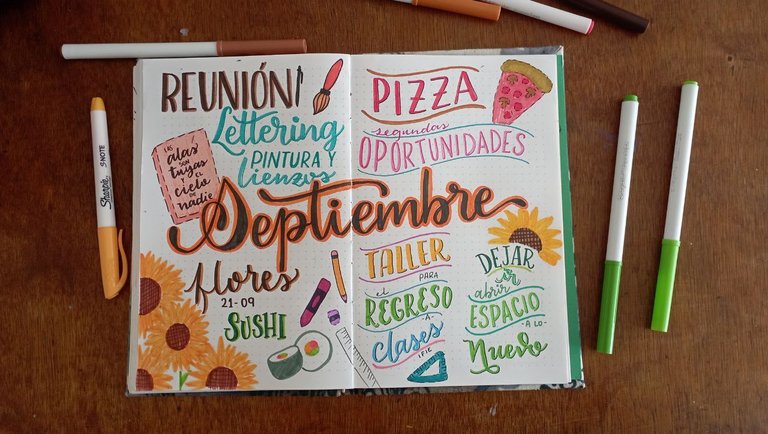 REUNIÓN
Lettering
PINTURA Y
lienzos
LAS
alas
SON
tuyas
Y EL
cielo
DE
nadie
PIZZA
segundas
OPORTUNIDADES
Septiembre
flores
21-09
SUSHI
TALLER
PARA
el
REGRESO
-A-
clases
IFIC
DEJAR
ir
abrir
ESPACIO
-A LO-
Nuevo
Sharpie S·NOTE